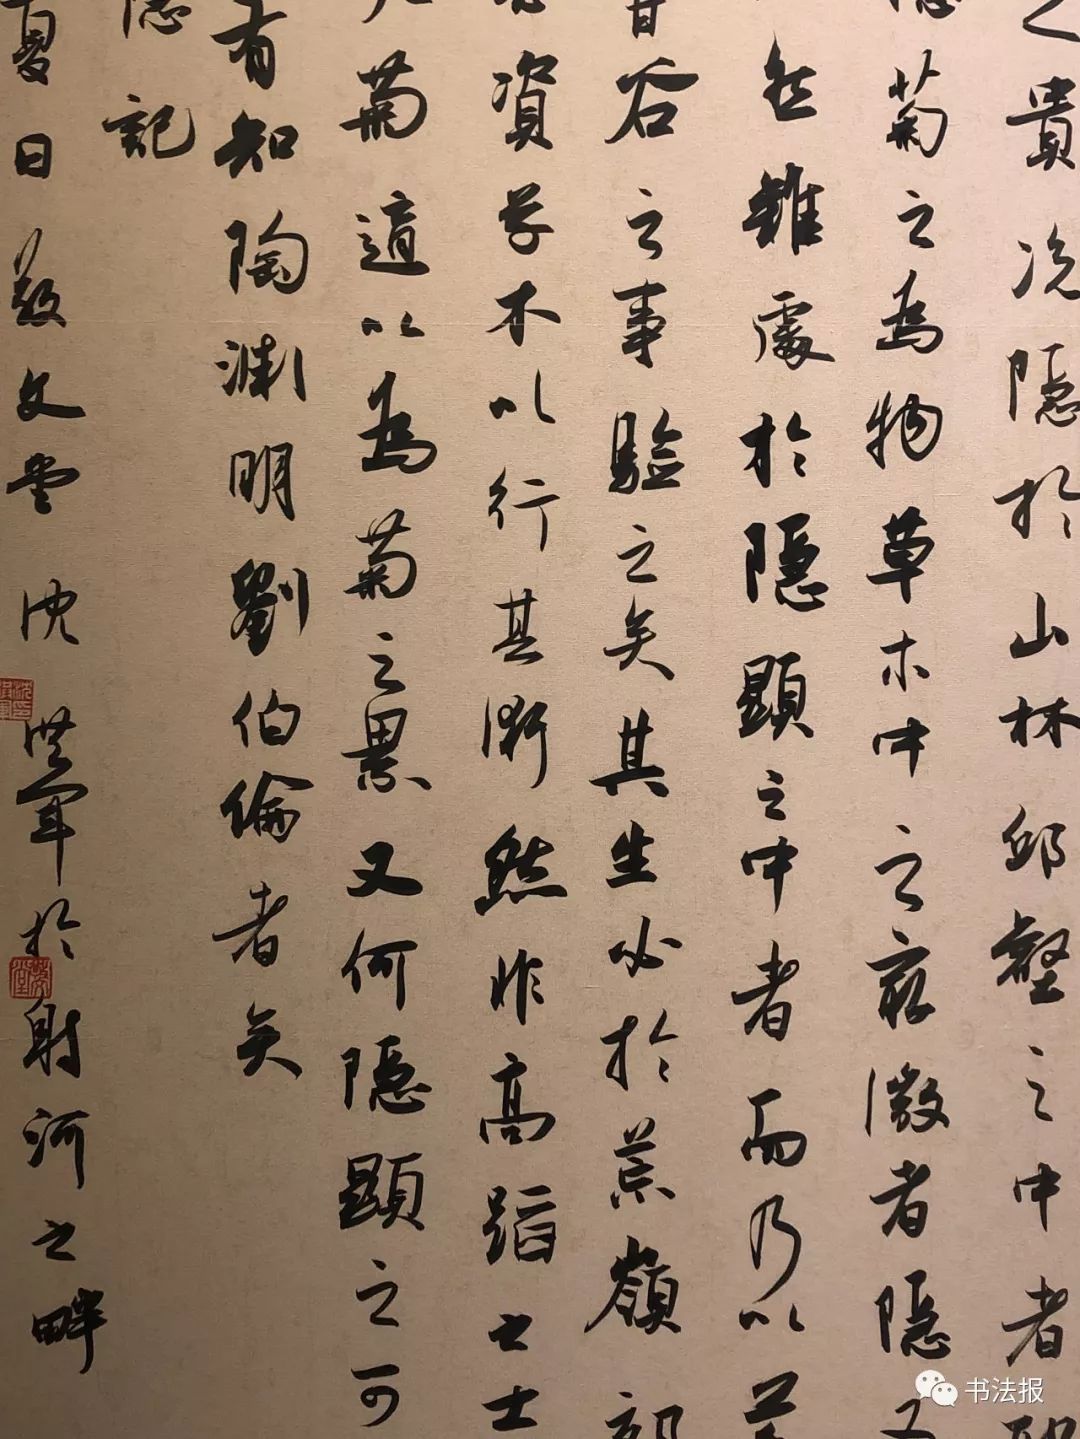 之貴况隱於山林邱壑之中者
隱菊之為物草木中之最微者隱又
然雖處於隱顯之中者而乃以菊
谷之事驗之矣其生必於荒嶺
資草木以行其術然非高蹈之士
菊適以為菊之累又何隱顯之可
有知陶淵明劉伯倫者矣
隱記
夏日敬文堂沈洪軍於射河之畔
书法报